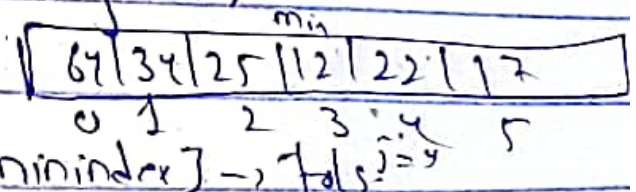 min
64 34 25 12 22 17
0 1 2 3 4 5
minindex] -> fals j=4